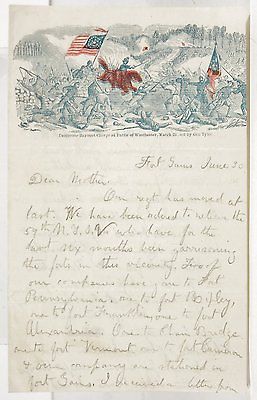 Desperate Bayonet Charge at Battle of Winchester, March 23, led by Gen Tyler.
Fort Gains June 30
Dear Mother.
Our regt has moved at
last. We have been ordered to relieve the
59th N.Y.S.V. who have for the
last six months been garrisoning
the forts in this vicinity. Two of
our companies have gone to Fort
Pennsylvania, one to fort
one to fort Franklin, one to fort
Alexandria. One to Chain Bridge
one to fort Vermont, one to fort Cameron
& our company are stationed in
fort Gains. I received a letter from